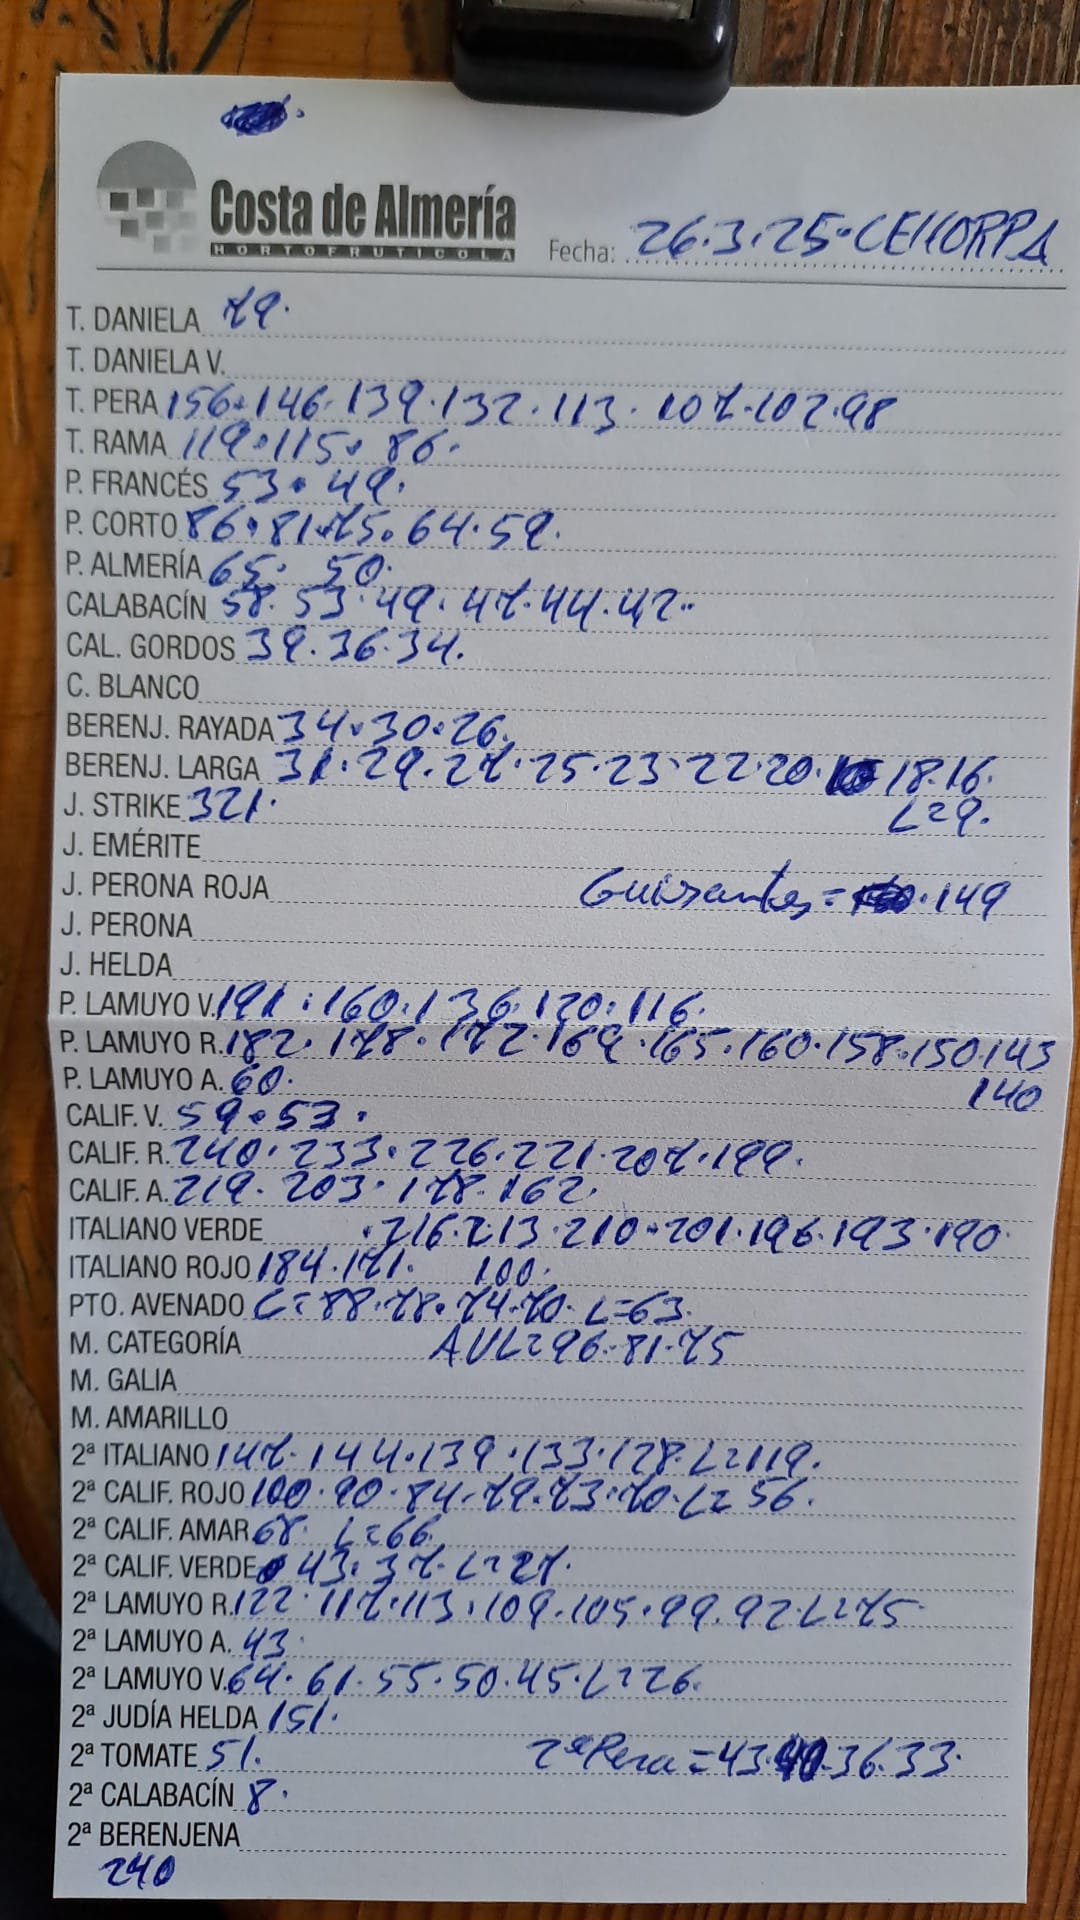 Costa de Almería
HORTOFRUTICOLA
Fecha: 26.3.25.CEHORPA
T. DANIELA 79.
T. DANIELA V.
T. PERA 156.146.139.132.113.107.102.98
T. RAMA 119.115.86.
P. FRANCÉS 53.49.
P. CORTO 86.81.75.64.59.
P. ALMERÍA 65. 50.
CALABACÍN 58.53.49.47.44.42..
CAL. GORDOS 39.36.34.
C. BLANCO
BERENJ. RAYADA 34.30.26.
BERENJ. LARGA 31.29.27.25.23.22.20. 18.16.
J. STRIKE 321. L=9.
J. EMÉRITE
J. PERONA ROJA Guisantes= .149
J. PERONA
J. HELDA
P. LAMUYO V. 191.160.136.120.116.
P. LAMUYO R. 182.178.172.169.165.160.158.150.143
P. LAMUYO A. 60. 140
CALIF. V. 59.53.
CALIF. R. 240.233.226.221.207.199.
CALIF. A. 219.203.178.162.
ITALIANO VERDE .216.213.210.201.196.193.190.
ITALIANO ROJO 184.171. 100.
PTO. AVENADO L=88.78.74.70. L=63.
M. CATEGORÍA AVL=96.81.75
M. GALIA
M. AMARILLO
2ª ITALIANO 147.144.139.133.128.L=119.
2ª CALIF. ROJO 100.90.84.79.73.70.L=56.
2ª CALIF. AMAR 68. L=66.
2ª CALIF. VERDE 43.37.L=27.
2ª LAMUYO R. 122.117.113.109.105.99.92.L=75
2ª LAMUYO A. 43.
2ª LAMUYO V. 64.61.55.50.45.L=26.
2ª JUDÍA HELDA 151.
2ª TOMATE 51. 2ª Pera=43.40.36.33.
2ª CALABACÍN 8.
2ª BERENJENA
240